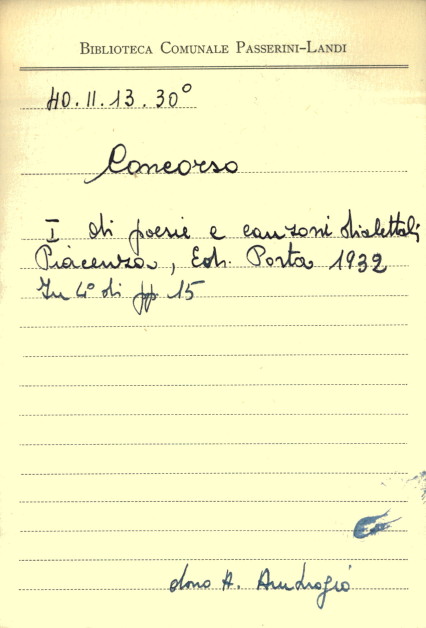 BIBLIOTECA COMUNALE PASSERINI-LANDI
40.II.13.30°
Concorso
I di poesie e canzoni dialettali
Piacenza, Ed. Porta 1932
In 4° di pp 15
dono A.